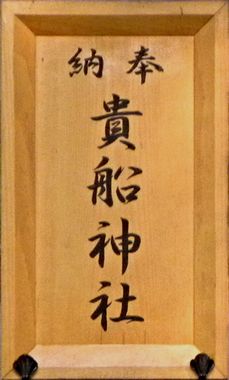 奉納
貴船神社